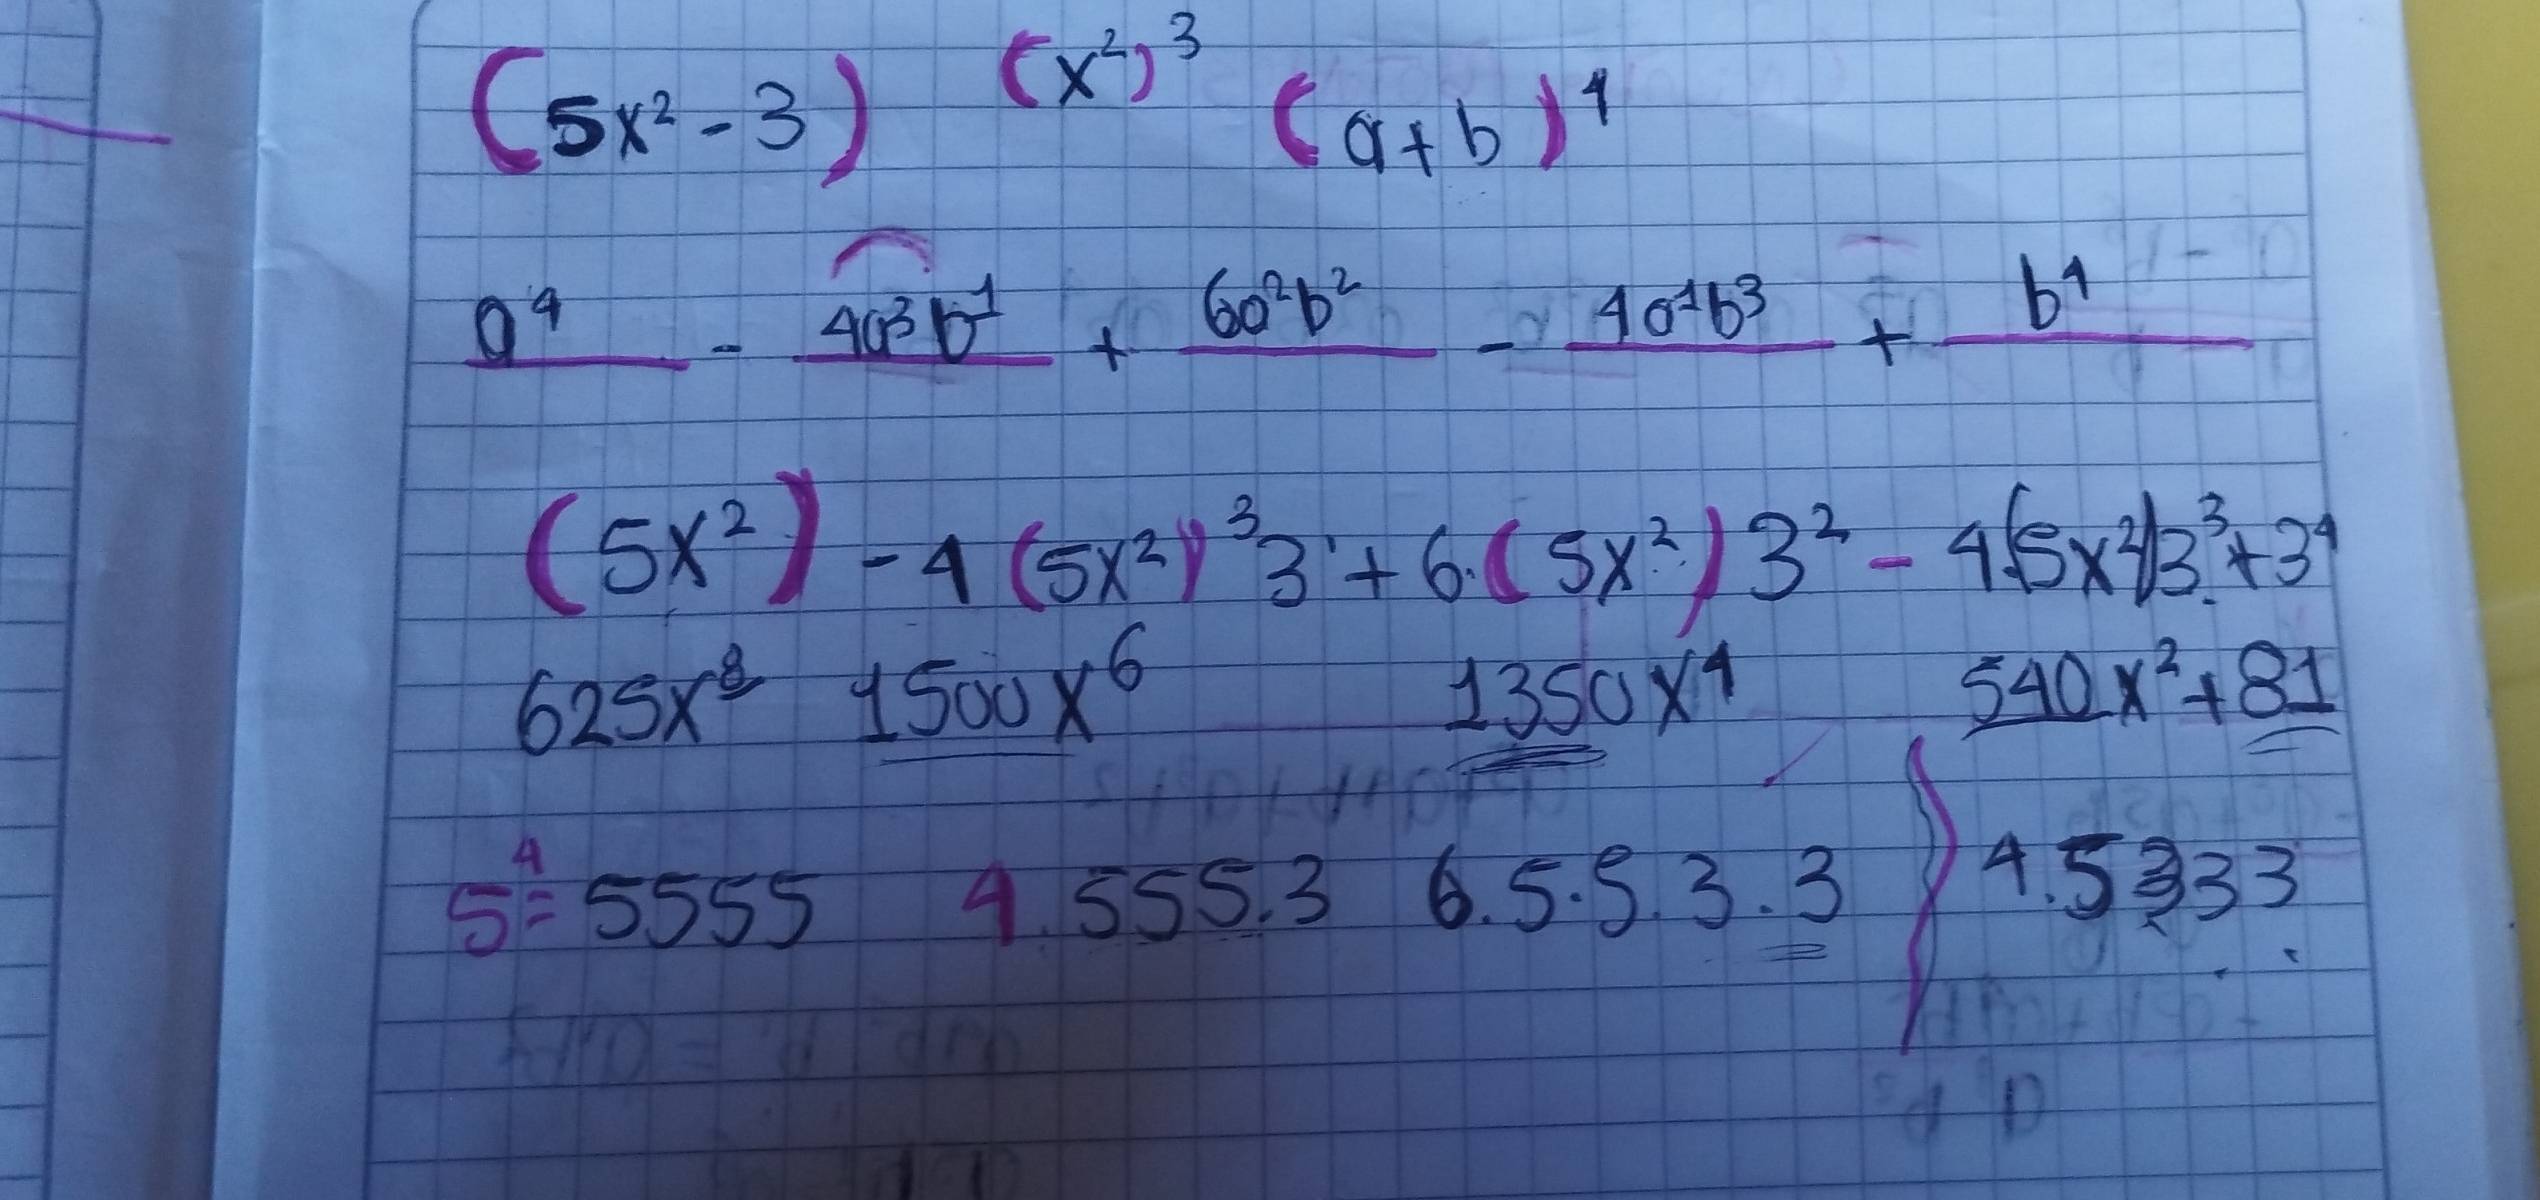 (5x² - 3) (x²)³ (a+b)⁴
a⁴ - 4a³b¹ + 6a²b² - 4a¹b³ + b⁴
(5x²) - 4(5x²)³3¹ + 6·(5x²)3² - 4·(5x²)3³ + 3⁴
625x⁸ 1500x⁶ 1350x⁴ 540x² + 81
5⁴= 5555 4.555.3 6.5.5.3.3 4.5333